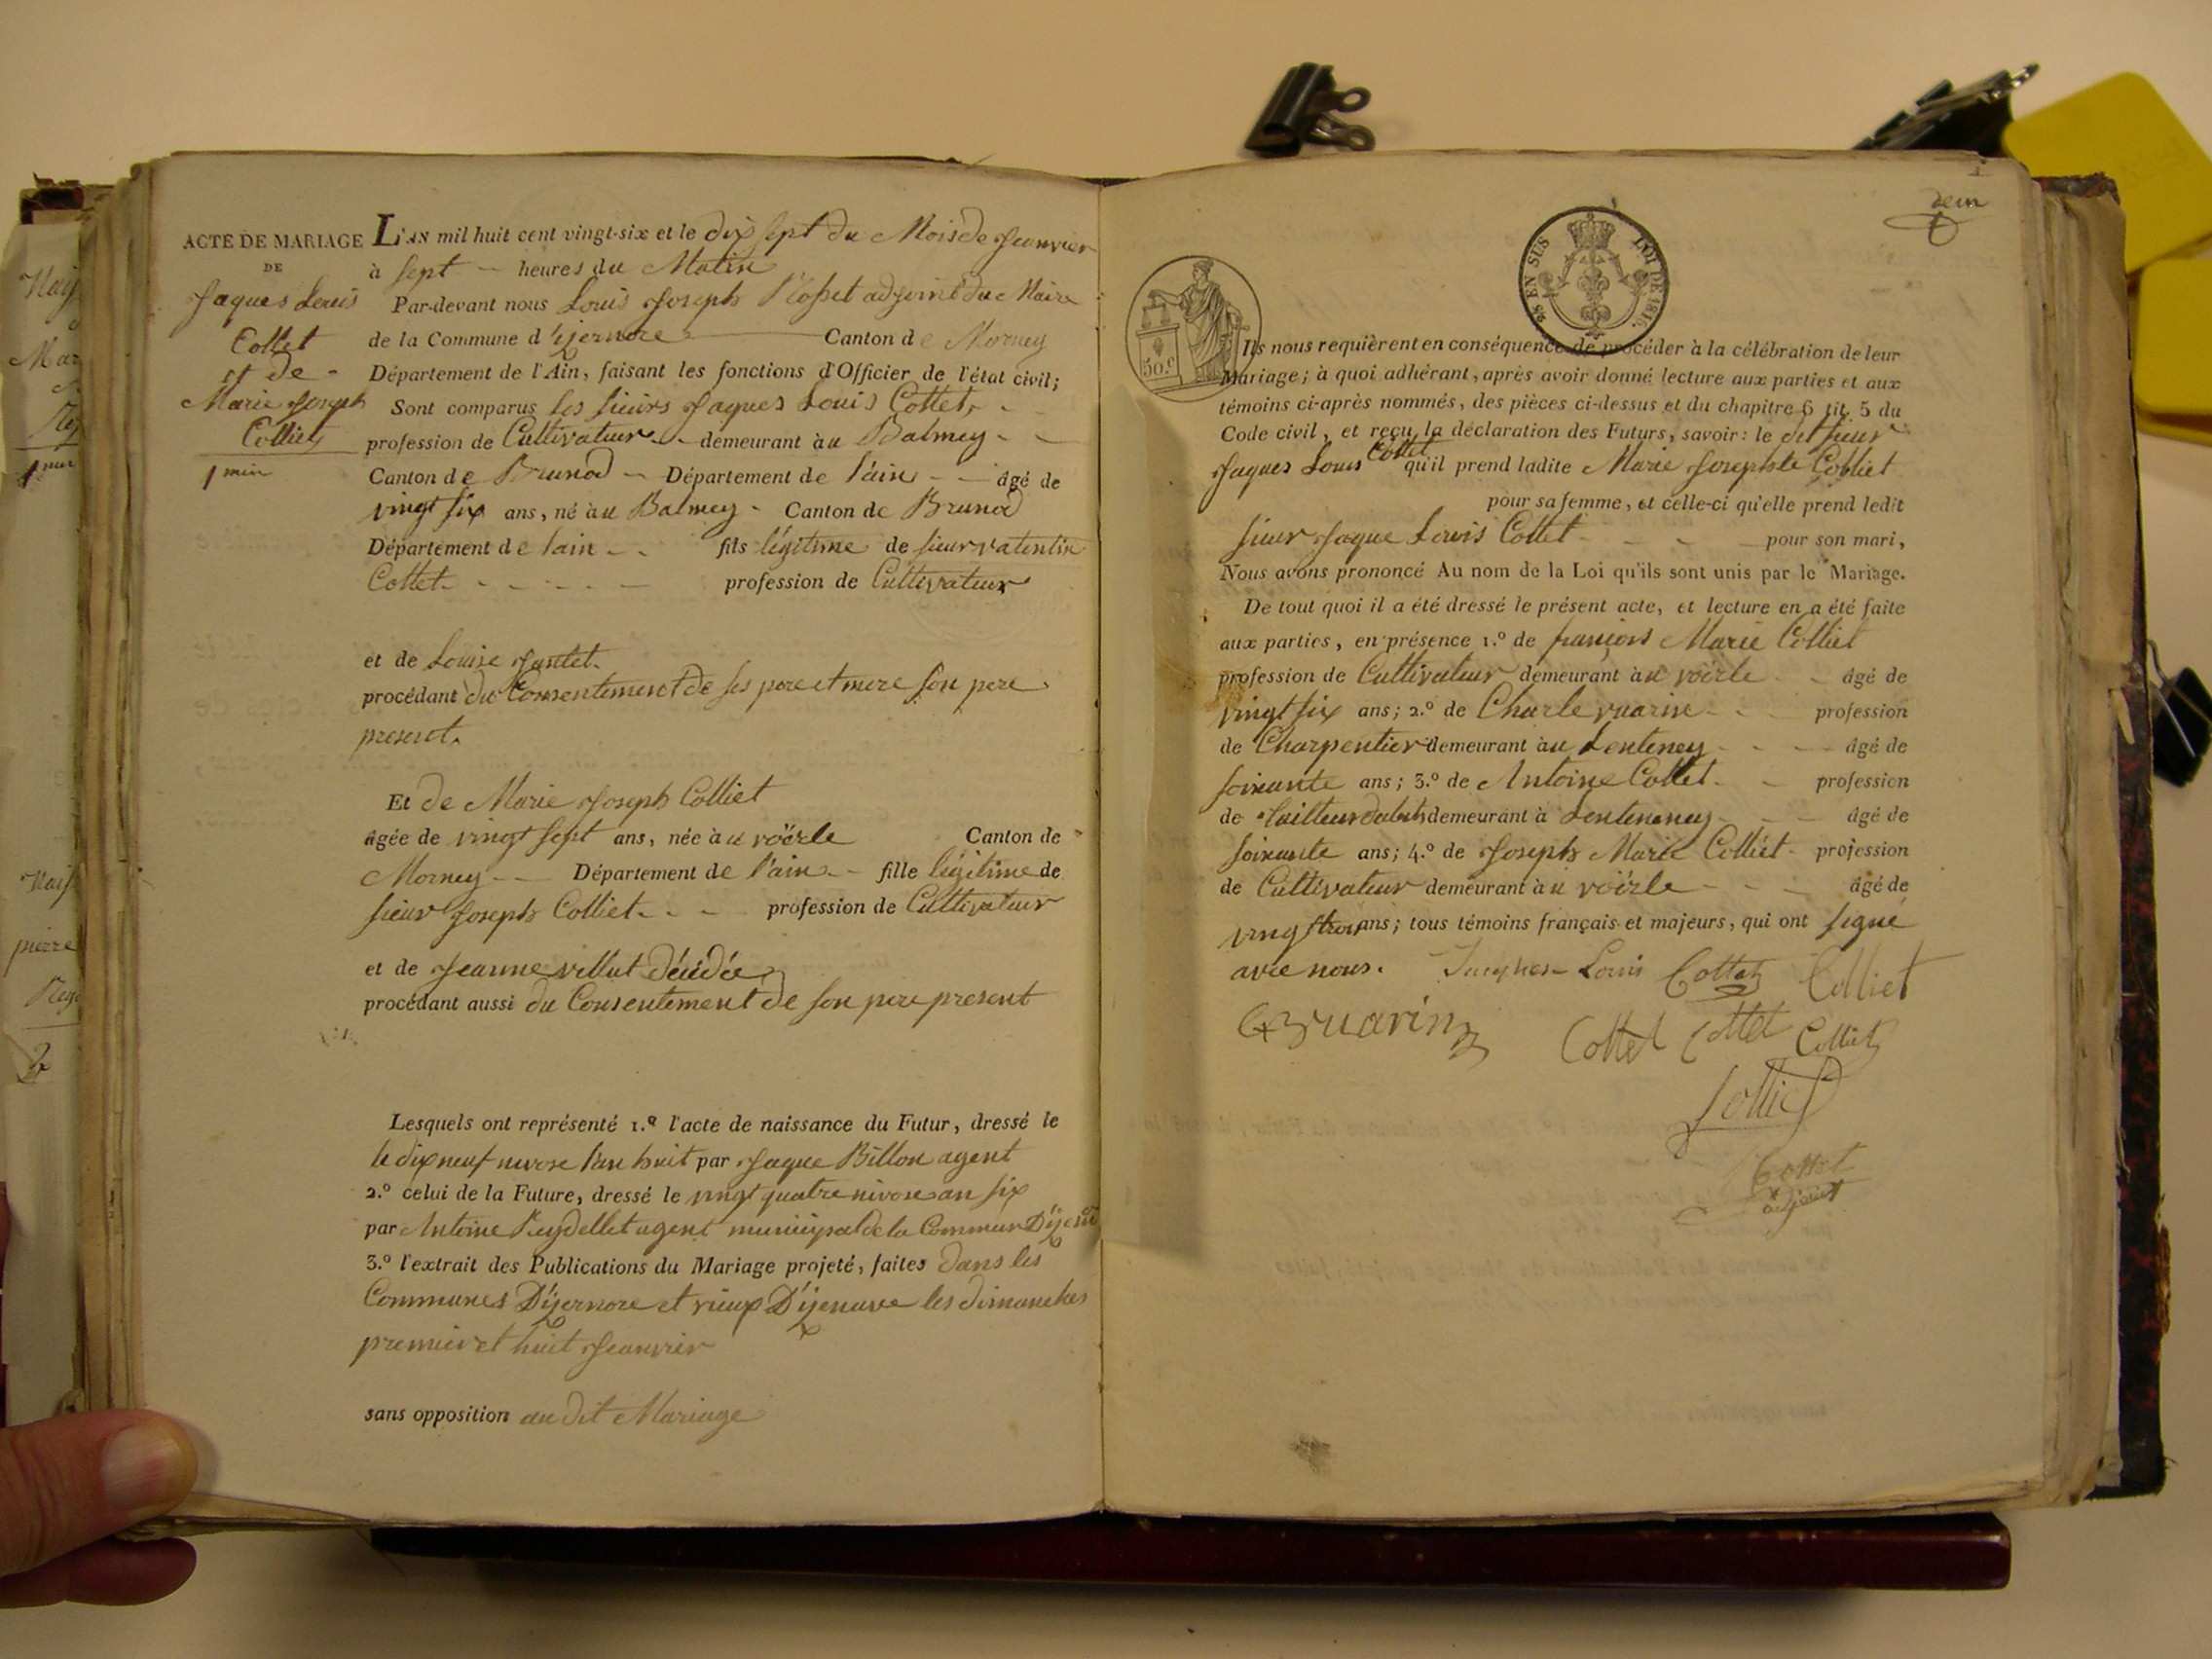 ACTE DE MARIAGE
DE
Jaques Louis
Cottet
et de
Marie Joseph
Colliet
1 min
L'AN mil huit cent vingt-six et le dix sept du Mois de Jeanvier
à sept heures du Matin
Par-devant nous Louis Joseph adjoint du Maire
de la Commune d'ijernore Canton de Morney
Département de l'Ain, faisant les fonctions d'Officier de l'état civil;
Sont comparus les sieurs Jaques Louis Cottet
profession de Cultivateur demeurant àu Balmey
Canton de Brunod Département de l'ain âgé de
vingt six ans, né àu Balmey Canton de Brunod
Département de lain fils légitime de sieur valentin
Cottet profession de Cultivateur
et de Louise Jantet
procédant du Consentement de ses pere et mere son pere
present.
Et de Marie Joseph Colliet
âgée de vingt sept ans, née àu voërle Canton de
Morney Département de l'ain fille légitime de
sieur Joseph Colliet profession de Cultivateur
et de Jeanne villut décédée
procédant aussi du Consentement de son pere present
Lesquels ont représenté 1.º l'acte de naissance du Futur, dressé le
le dix neuf nivose l'an huit par Jaque Billon agent
2.º celui de la Future, dressé le vingt quatre nivose an six
par Antoine Reydellet agent municipal de la Commune D'ijernore
3.º l'extrait des Publications du Mariage projeté, faites dans les
Communes D'ijernore et vieux D'ijenave les dimanches
premier et huit Jeanvier
sans opposition au dit Mariage
EN SUS LOI DE 1816
50.c
Ils nous requièrent en conséquence de procéder à la célébration de leur
Mariage; à quoi adhérant, après avoir donné lecture aux parties et aux
témoins ci-après nommés, des pièces ci-dessus et du chapitre 6 tit. 5 du
Code civil, et reçu la déclaration des Futurs, savoir: le dit sieur
Jaques Louis Cottet qu'il prend ladite Marie Josephte Colliet
pour sa femme, et celle-ci qu'elle prend ledit
sieur Jaque Louis Cottet pour son mari,
Nous avons prononcé Au nom de la Loi qu'ils sont unis par le Mariage.
De tout quoi il a été dressé le présent acte, et lecture en a été faite
aux parties, en présence 1.º de françois Marie Colliet
profession de Cultivateur demeurant àu voërle âgé de
vingt six ans; 2.º de Charle vuarin profession
de Charpentier demeurant àu Lenteney âgé de
soixante ans; 3.º de Antoine Cottet profession
de tailleur dabits demeurant à Lenteney âgé de
soixante ans; 4.º de Joseph Marie Colliet profession
de Cultivateur demeurant àu voërle âgé de
vingt trois ans; tous témoins français et majeurs, qui ont signé
avec nous. Jacques Louis Cottet Colliet
vuarin Cottet Cottet Colliet
Colliet
adjoint